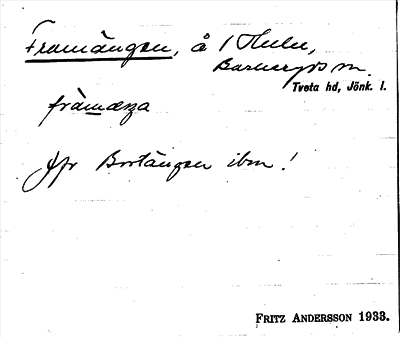 Framängen, å 1 Hulu,
Barnarps sn.
Tveta hd, Jönk. l.
främæŋa
Jfr Bortängen ibm!
FRITZ ANDERSSON 1933.